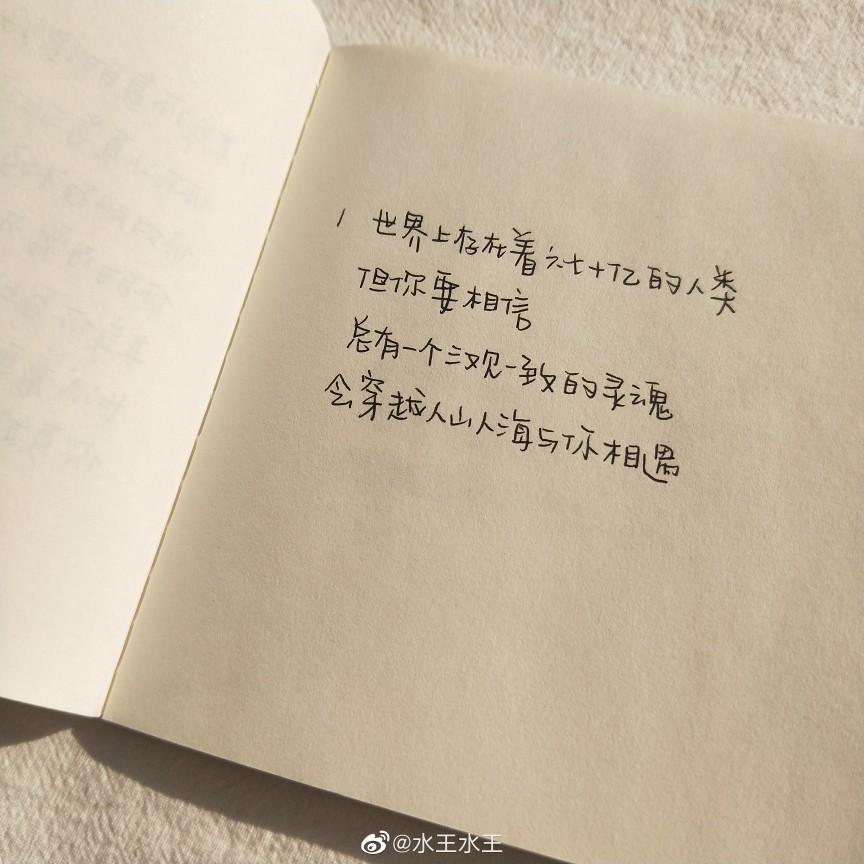 1 世界上存在着六七十亿的人类
但你要相信
总有一个三观一致的灵魂
会穿越人山人海与你相遇
@水王水王